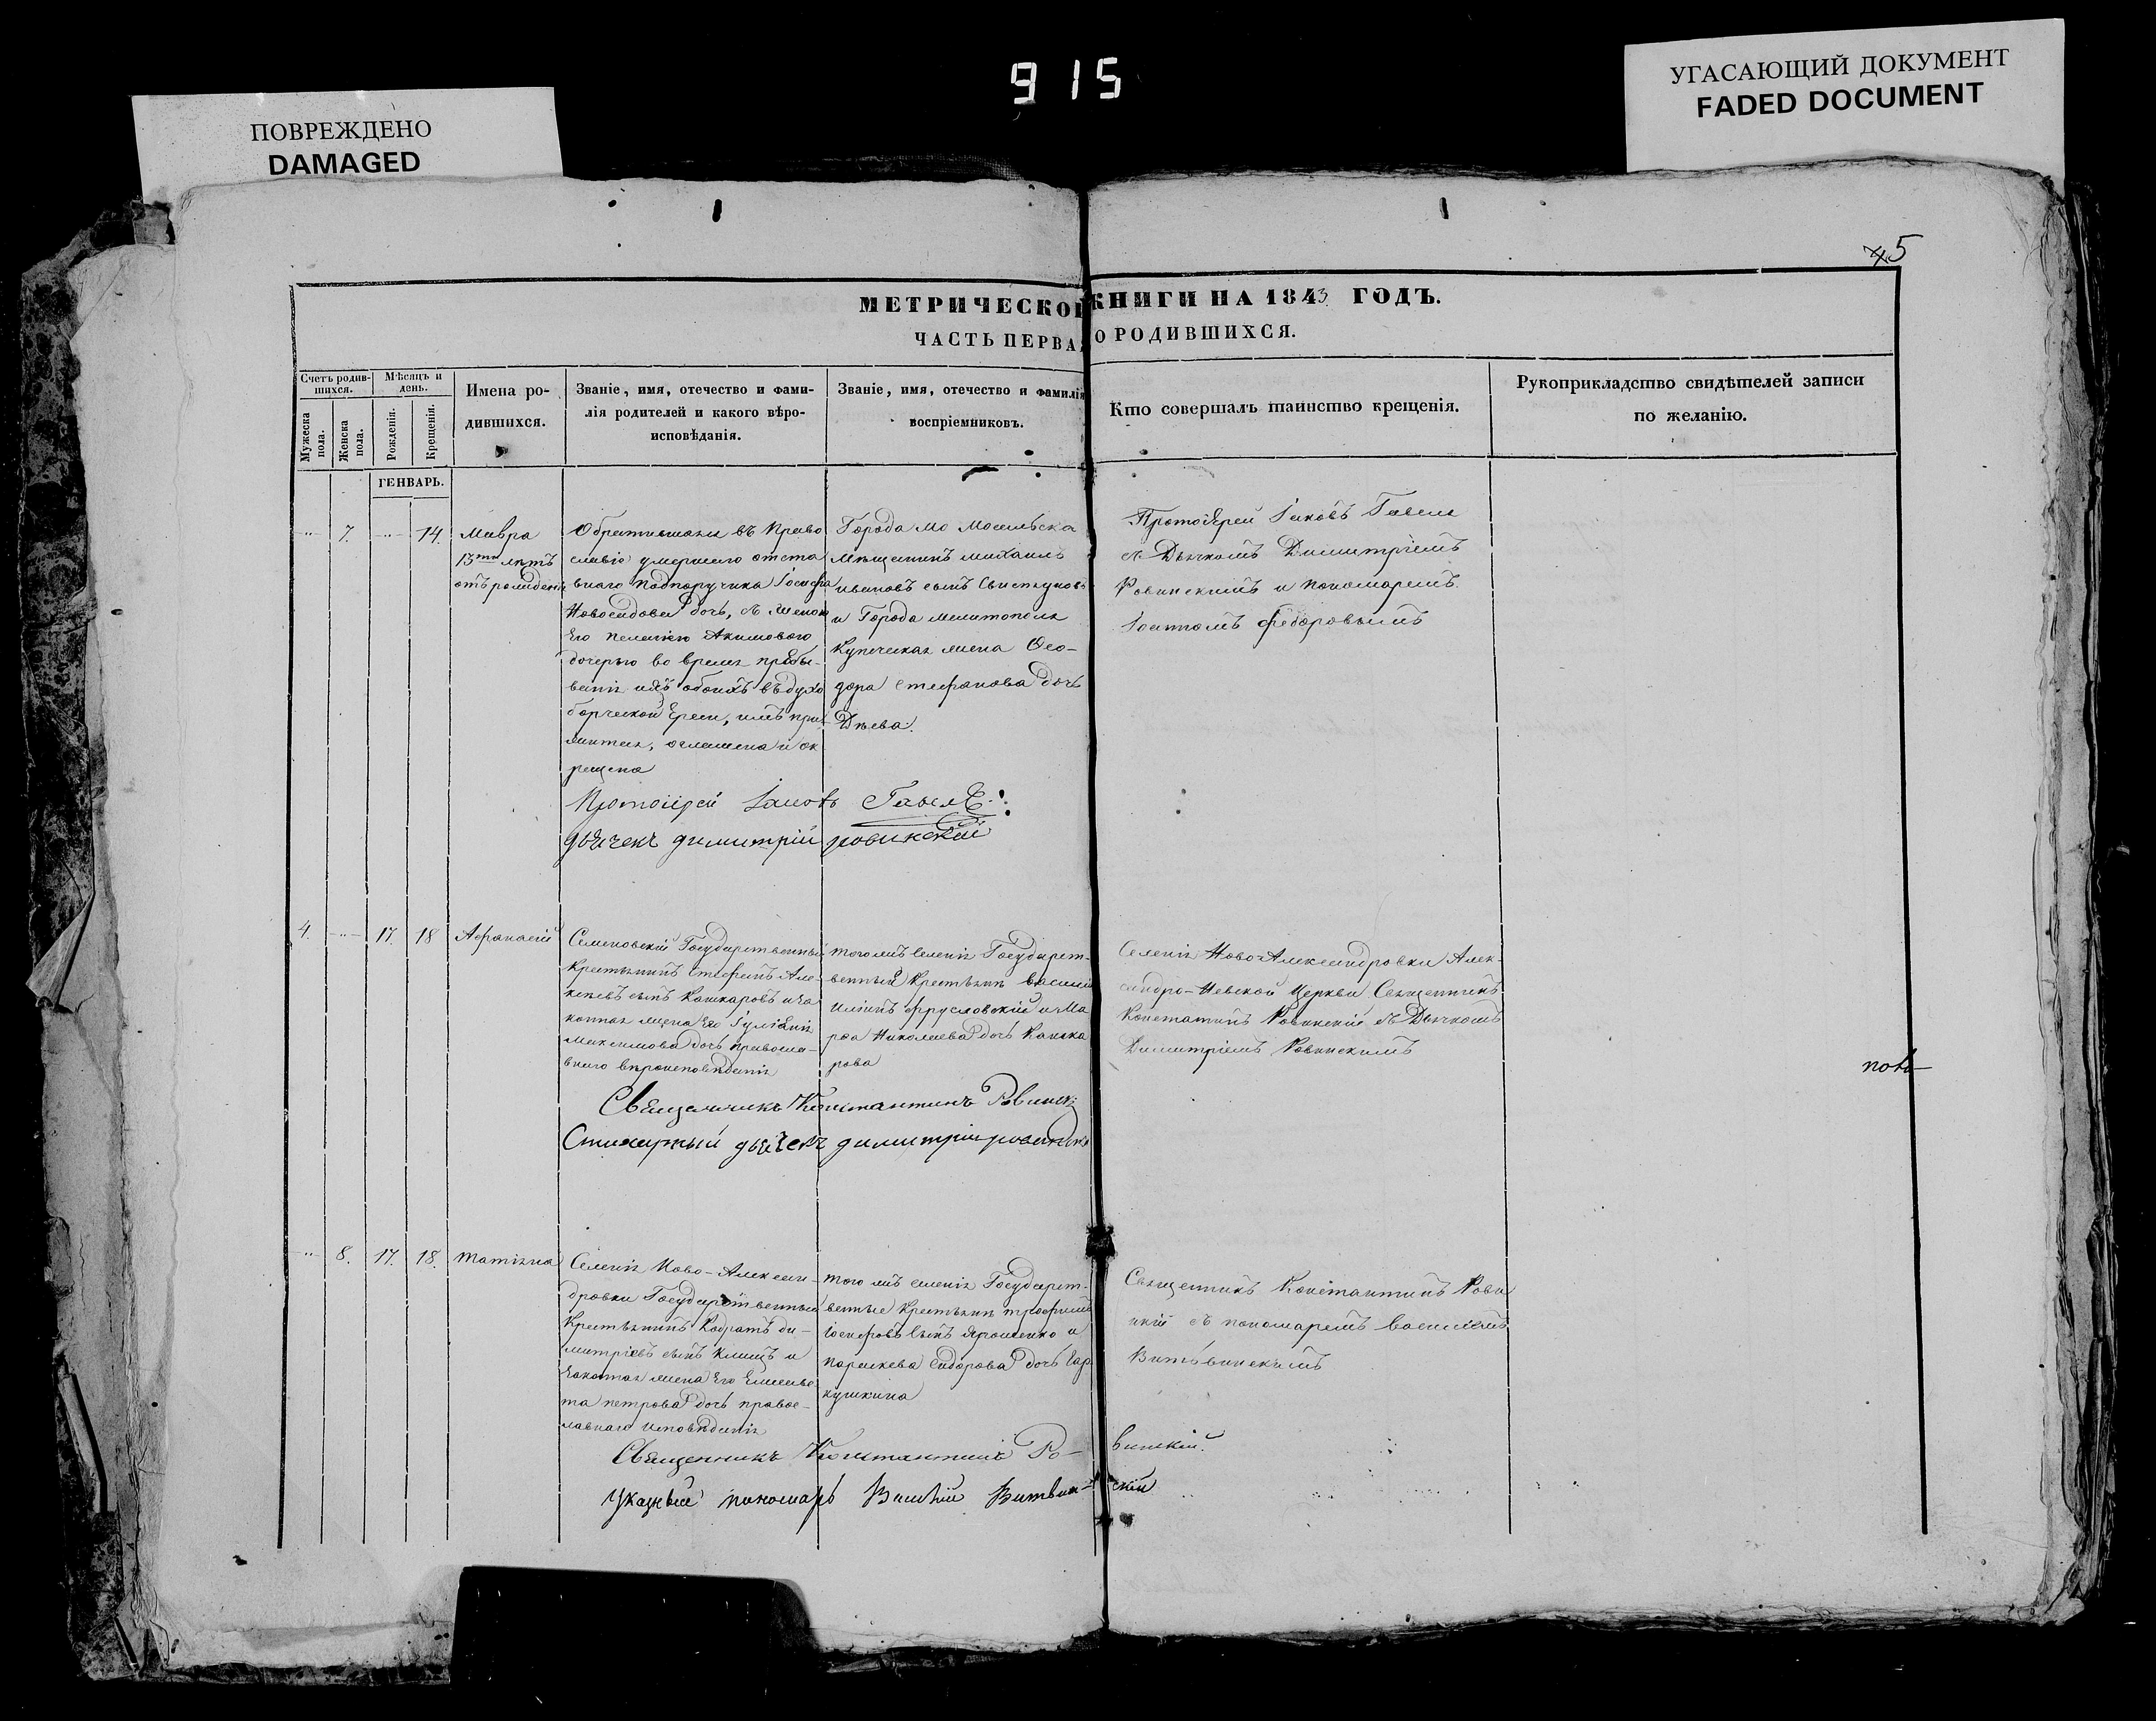 915
ПОВРЕЖДЕНО
DAMAGED
УГАСАЮЩИЙ ДОКУМЕНТ
FADED DOCUMENT
5
МЕТРИЧЕСКОЙ КНИГИ НА 1843 ГОДЪ.
ЧАСТЬ ПЕРВА О РОДИВШИХСЯ.
Счетъ родив-
шихся.
Мужеска
пола.
Женска
пола.
Мѣсяцъ и
день.
Рожденія.
Крещенія.
Имена ро-
дившихся.
Званіе, имя, отечество и фами-
лія родителей и какого вѣро-
исповѣданія.
Званіе, имя, отечество и фамилія
воспріемниковъ.
Кто совершалъ таинство крещенія.
Рукоприкладство свидѣтелей записи
по желанію.
ГЕНВАРЬ.
7.
14.
Мавра
13ти лѣтъ
отъ рожденія
Обратившаяся въ Право
славіе умершаго отста
внаго Подпоручика Іосифа
дочь, съ женою
Его Пелагіею Акимового
дочерью во время пребы-
ванія ихъ обоихъ въ духо
борческой Ереси, имъ при
житая, оглашена и ок
рещена
Города
Мѣщанинъ Михаилъ
Ивановъ сынъ Свистуновъ
и Города Мелитополя
Купеческая жена Ѳео-
дора Стефанова дочь
Дѣева.
Протоіерей Іаковъ Гавель
съ Дьячкомъ Димитріемъ
Ровинскимъ и Пономаремъ
Федоровымъ
Протоіерей Іаковъ
дьячекъ димитрій ровинскій
4.
17.
18
Афанасій
Семеновскій Государственный
Крестьянинъ Стефанъ Але-
ксѣевъ сынъ Кашкаровъ и за
конная жена Его Іуліанія
Максимова дочь правосла-
внаго вѣроисповѣданія
того жъ селенія Государст-
венный Крестьянин Василій
Ильинъ Фрусловскій и Ма
рѳа Николаева дочь Кашка
рова
Селенія Ново-Александровки Алек-
сандро-Невской Церкви Священникъ
Константинъ Ровинскій съ Дьячкомъ
Димитріемъ Ровинскимъ
Священникъ Константинъ Ровинск
Стихарный дьячекъ димитрій
8.
17.
18.
Татіяна
Селенія Ново-Алексан-
дровки Государственный
Крестьянинъ Кодратъ Ди-
митріевъ сынъ Клищъ и
законная жена Его Елисаве
та Петрова дочь правос-
лавнаго исповѣданія
того жъ селенія Государст-
венные Крестьянин Трофимъ
Іосифовъ сынъ Ярошенко и
Параскева Сидорова дочь Гар
кушкина
Священникъ Константинъ Рови
нскій съ пономаремъ Василіемъ
Витвинскимъ
Священникъ Константинъ Ро-винскій.
Указный пономарь Василій Витвин-скій